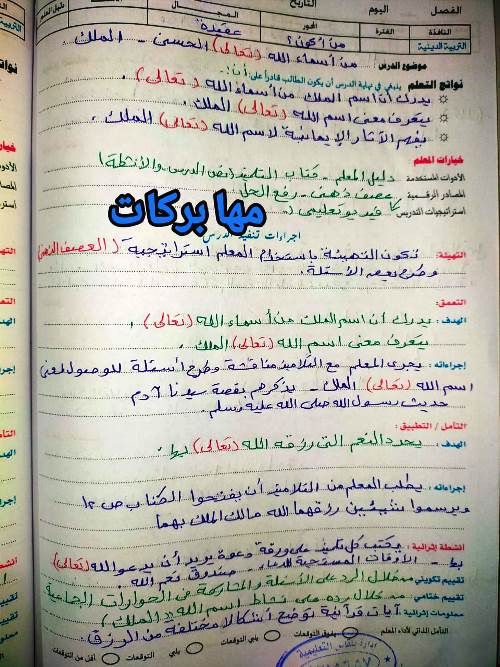 الفصل اليوم التاريخ المجال
النافذة الفترة المحور
التربية الدينية من أكون؟ عقيدة
موضوع الدرس من أسماء الله (تعالى) الحسنى - الملك
نواتج التعلم ينبغي في نهاية الدرس أن يكون الطالب قادرا على أن:
يدرك أن اسم الملك من أسماء الله (تعالى).
يتعرف معنى اسم الله (تعالى) الملك.
يفهم الآثار الإيمانية لاسم الله (تعالى) الملك.
خيارات المعلم
الأدوات المستخدمة دليل المعلم - كتاب التلميذ (نص الدرس والأنشطة)
المصادر الرقمية
استراتيجيات التدريس عصف ذهني - رفع الحل
فيديو تعليمي
مها بركات
اجراءات تنفيذ الدرس
التهيئة: تكون التهيئة باستخدام المعلم استراتيجية (العصف الذهني)
وطرح بعض الأسئلة.
التعمق:
الهدف: يدرك أن اسم الملك من أسماء الله (تعالى).
يتعرف معنى اسم الله (تعالى) الملك.
إجراءاته: يجرى المعلم مع التلاميذ مناقشة وطرح أسئلة للوصول لمعنى
اسم الله (تعالى) الملك - يذكرهم بقصة سيدنا آدم
حديث رسول الله صلى الله عليه وسلم.
التأمل / التطبيق:
الهدف: يحدد النعم التى رزقه الله (تعالى) بها.
إجراءاته: يطلب المعلم من التلاميذ أن يفتحوا الكتاب ص ١٢
ويرسموا شيئين رزقهما الله مالك الملك بهما
أنشطة إثرائية: يكتب كل تلميذ على ورقة دعوة يريد أن يدعو الله (تعالى)
بها - الأوقات المستحبة للدعاء - صندوق نعم الله
تقييم تكويني من خلال الرد على الأسئلة والمشاركة فى الحوارات الجماعية
تقييم ختامي من خلال رده على نشاط اسم الله (الملك)
معلومات إثرائية آيات قرآنية توضح أشكالا مختلفة من الرزق.
التأمل الذاتي لأداء المعلم يفوق التوقعات يلبي التوقعات أقل من التوقعات